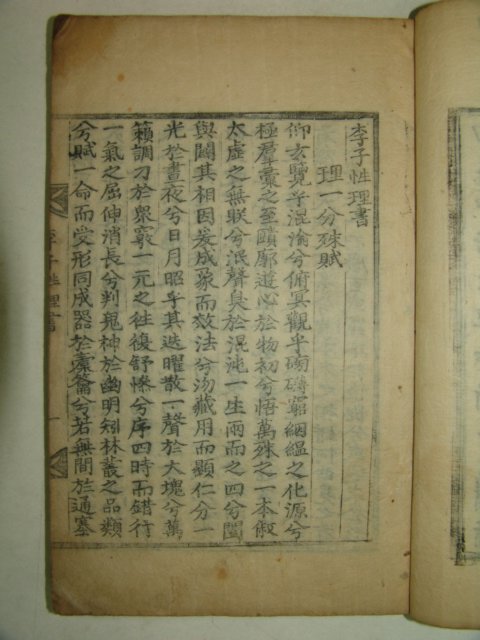 李子性理書
理一分殊賦
仰玄覽乎混淪兮俯冥觀乎磅礴窮絪縕之化源兮
極羣彙之至賾廓遊心於物初兮悟萬殊之一本俶
太虛之無眹兮泯聲臭於混沌一生兩而之四兮闔
與闢其相因爰成象而效法兮沕藏用而顯仁分一
光於晝夜兮日月昭乎其迭曜散一聲於大塊兮萬
籟調刁於衆竅一元之往復舒慘兮序四時而錯行
一氣之屈伸消長兮判鬼神於幽明矧林叢之品類
兮賦一命而受形同成器於橐籥兮若無間於通塞
李子性理書 一